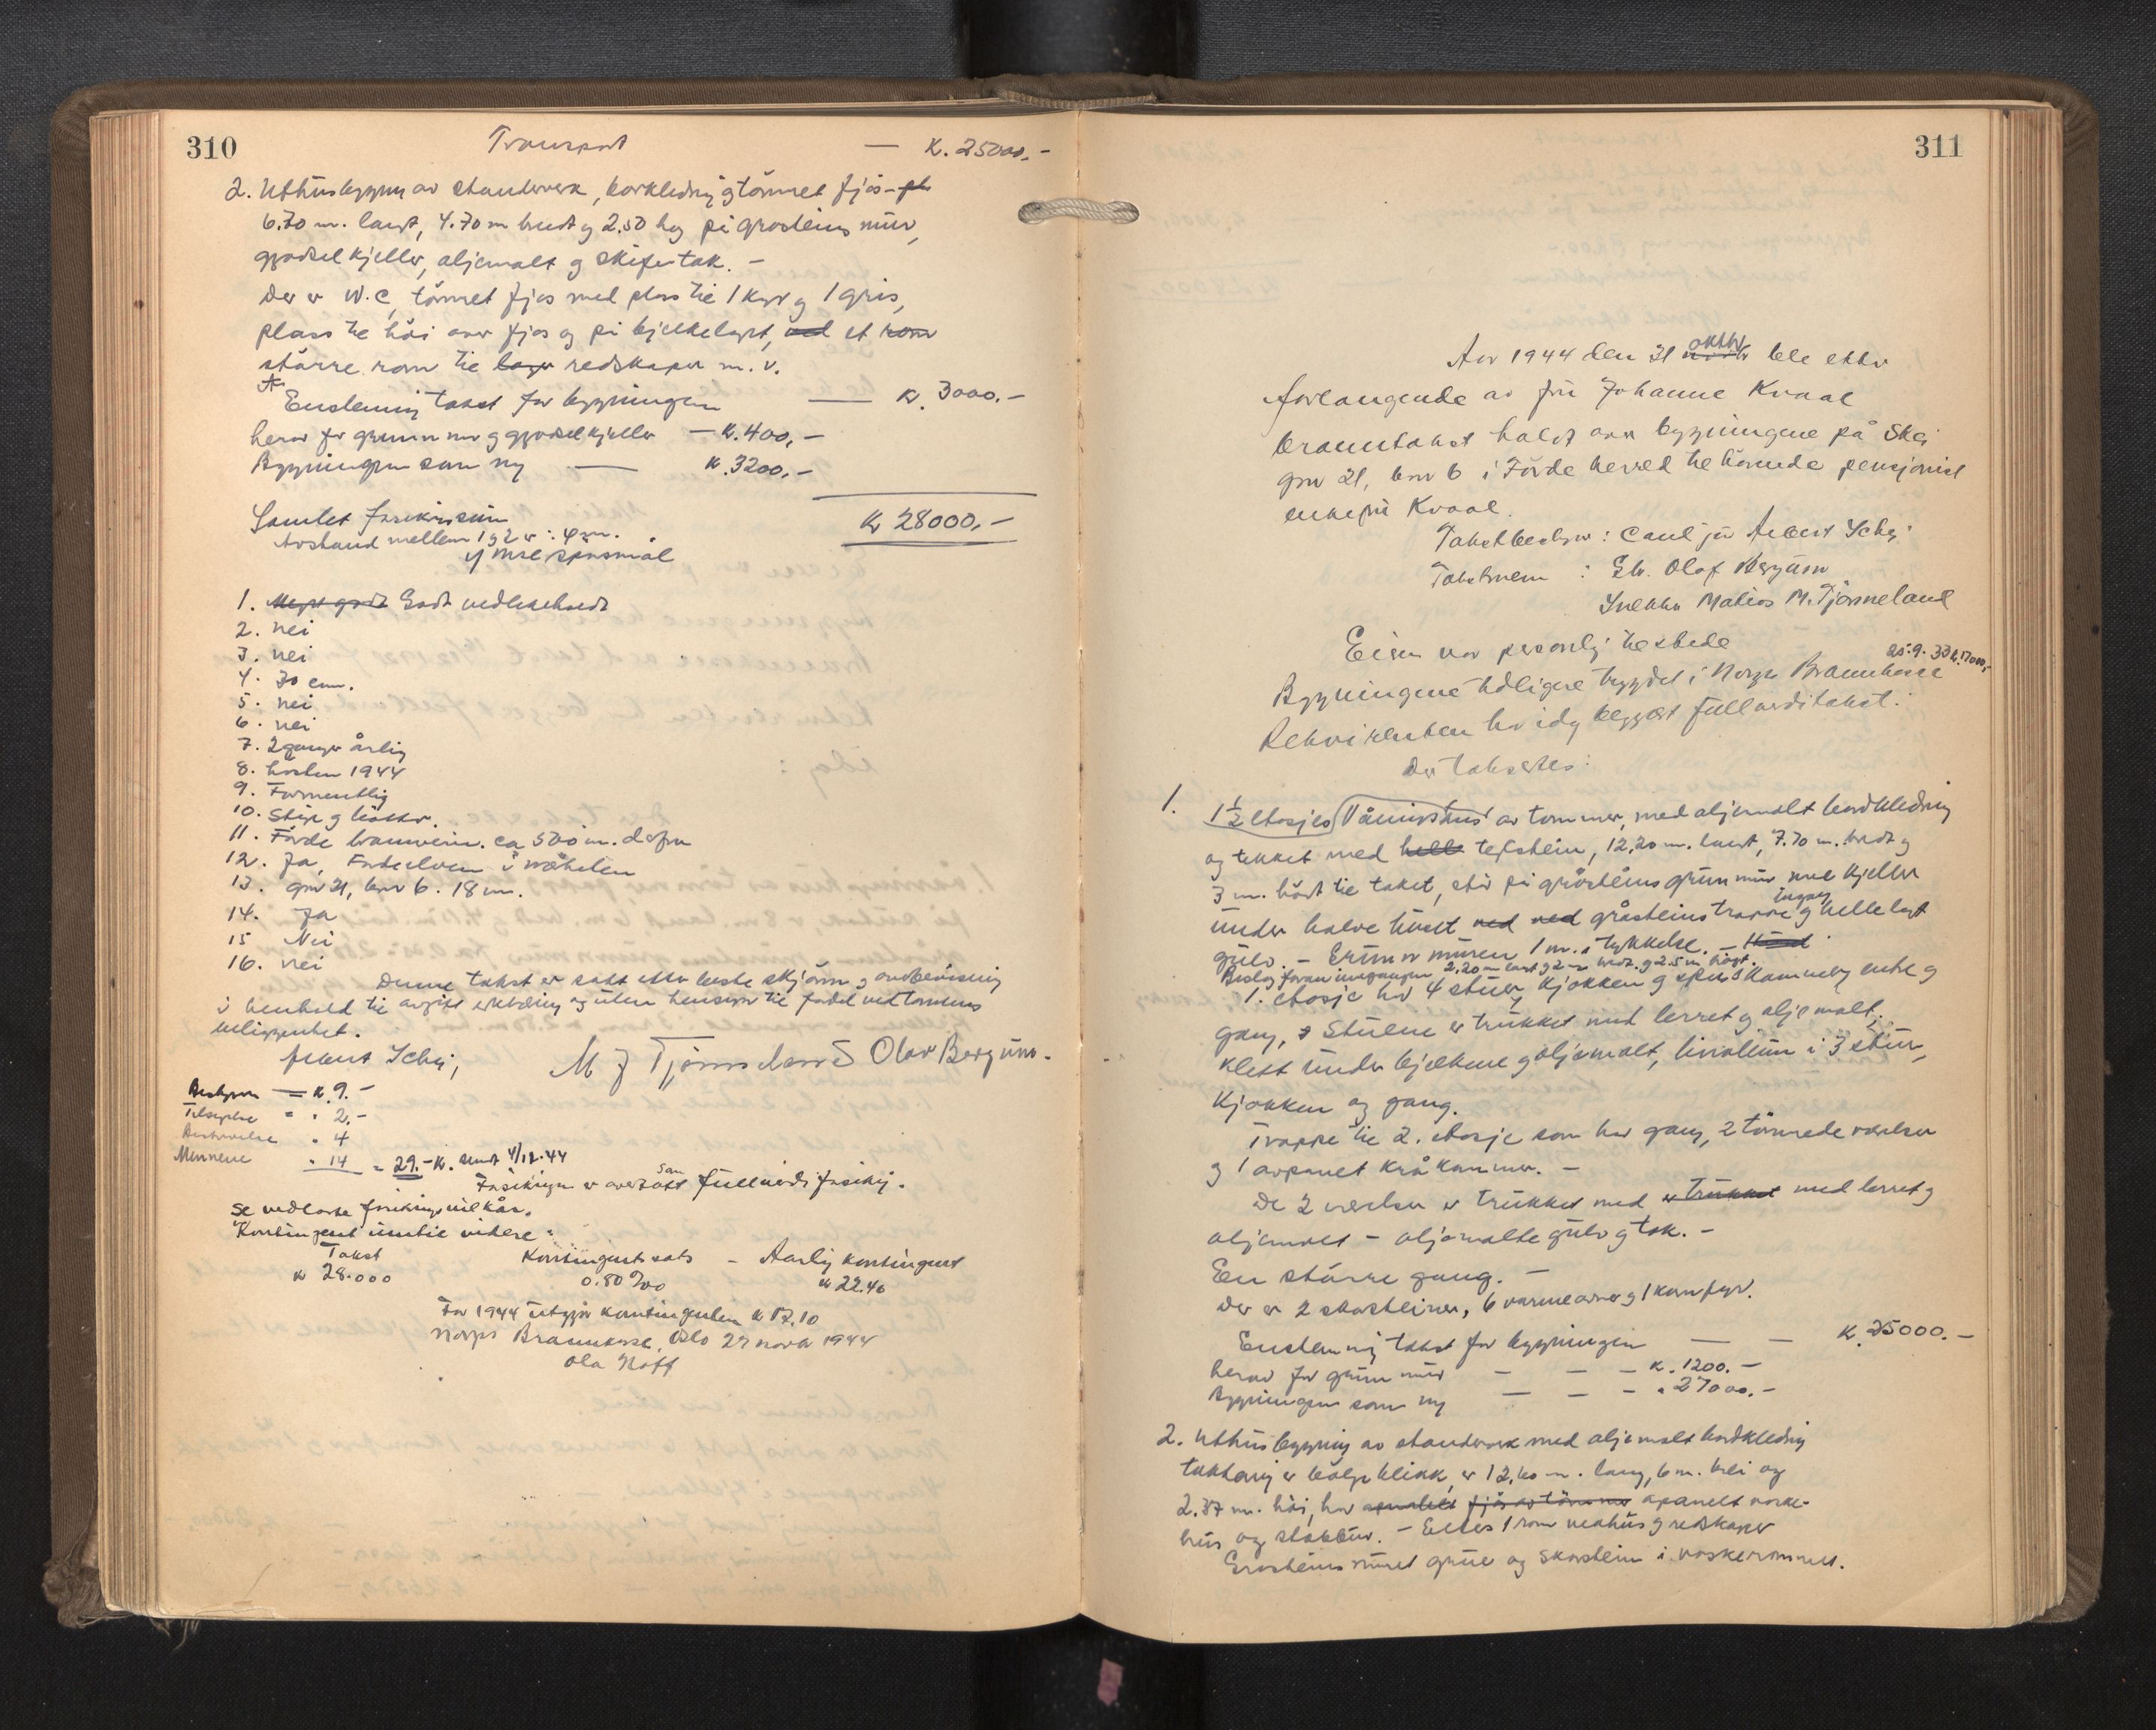 310
Transport — K. 25000.-
2. Uthusbygning av standverk, bordkledning og tømret fjøs
6.70 m. langt, 4.70 m bredt og 2.50 høg på gråsteins mur,
gjødselkjeller, oljemalt og skifertak. -
Der er W.C, tømret fjøs med plass til 1 kyr og 1 gris,
plass til høi over fjøs og på bjelkelaget, ved et rom
større rom til lager redskaper m. v.
Enstemmig takst for bygningen — kr. 3000.-
herav for grunnmur og gjødselkjeller — K. 400,-
Bygningen som ny — K. 3200,-
Samlet forsikr.sum Kr 28000,-
Avstand mellem 1 og 2 er : 4 m.
Ymse spørsmål
1. Meget godt Godt vedlikeholdt
2. nei
3. nei
4. 70 cm.
5. nei
6. nei
7. 2 ganger årlig
8. høsten 1944
9. Formentlig
10. Stige og bøtter.
11. Førde brannvern. ca 500 m. derfra
12. Ja, Førdeelven i nærheten
13. gnr 21, bnr 6. 18 m.
14. Ja
15 Nei
16. nei
Denne takst er satt etter beste skjønn og overbevisning
i henhold til avgitt erklæring og uten hensyn til fordel ved tomtens
beliggenhet.
Albert Schei, M J Tjønneland Olav Bergum.
Bestyrer — K. 9.-
Tilsigelse " " 2.-
Beskrivelse " 4
Mennene " 14 = 29.- K. sendt 4/12-44
Forsikringen er overtatt som fullverdiforsikring.
Se vedlagte forsikringsvilkår.
Kontingent inntil videre:
Takst Kontingentsats - Aarlig kontingent
kr 28.000 0.80 ‰ kr 22.40
For 1944 utgjør kontingenten kr 17.10
Norges Brannkasse, Oslo 27 novbr 1944
Ola Hoff
311
Aar 1944 den 31 oktbr ble etter
forlangende av fru Johanne Kvaal
branntakst holdt over bygningene på Skei
gnr 21, bnr 6 i Førde herred tilhørende pensjonist
enkefru Kvaal.
Takstbestyrer : Albert Schei
Takstmenn : Olaf Bergum
Snekker Matias M. Tjønneland
Eieren var personlig tilstede
25.9.33 k. 17000,-
Bygningene tidligere trygdet i Norges Brannkasse
Rekvirenten har idag begjært fullverditakst.
Der takseres:
1. 1½ etasjes Våningshus av tømmer, med oljemalt bordkledning
og tekket med helle teglstein, 12.20 m. langt, 7.70 m. bredt og
3 m. høit til taket, står på gråsteins grunnmur med kjeller
under halve huset ved ved gråsteinstrappe inngang og hellelagt
gulv. - Grunnmuren 1 m. i tykkelse. - Huset
Bislag foran inngangen 2.20 m langt og 2 m bredt og 2.5 m høgt.
1. etasje har 4 stuer, kjøkken og spiskammer og
gang, Stuene er trukket med lerret og oljemalt,
klett under bjelkene og oljemalt, linoleum i 3 stuer,
kjøkken og gang.
Trappe til 2. etasje som har gang, 2 tømrede værelser
og 1 avpanelt kråkammer. -
De 2 værelser er trukket med er trukket med lerret og
oljemalt - oljemalte gulv og tak. -
En større gang. -
Der er 2 skorsteiner, 6 varmeovner og 1 komfyr.
Enstemmig takst for bygningen — — K. 25000.-
herav for grunnmur - - - K. 1200.-
Bygningen som ny - - - " 27000.-
2. Uthusbygning av standverk med oljemalt bordkledning
takteking er bølgeblikk, er 12.60 m. lang, 6 m. brei og
2.37 m. høi, har fjøs av tømmer apanelt vaske-
hus og stabbur. - Ellers 1 rom vedhus og redskaper
Gråsteinsmuret grue og skorstein i vaskerommet.